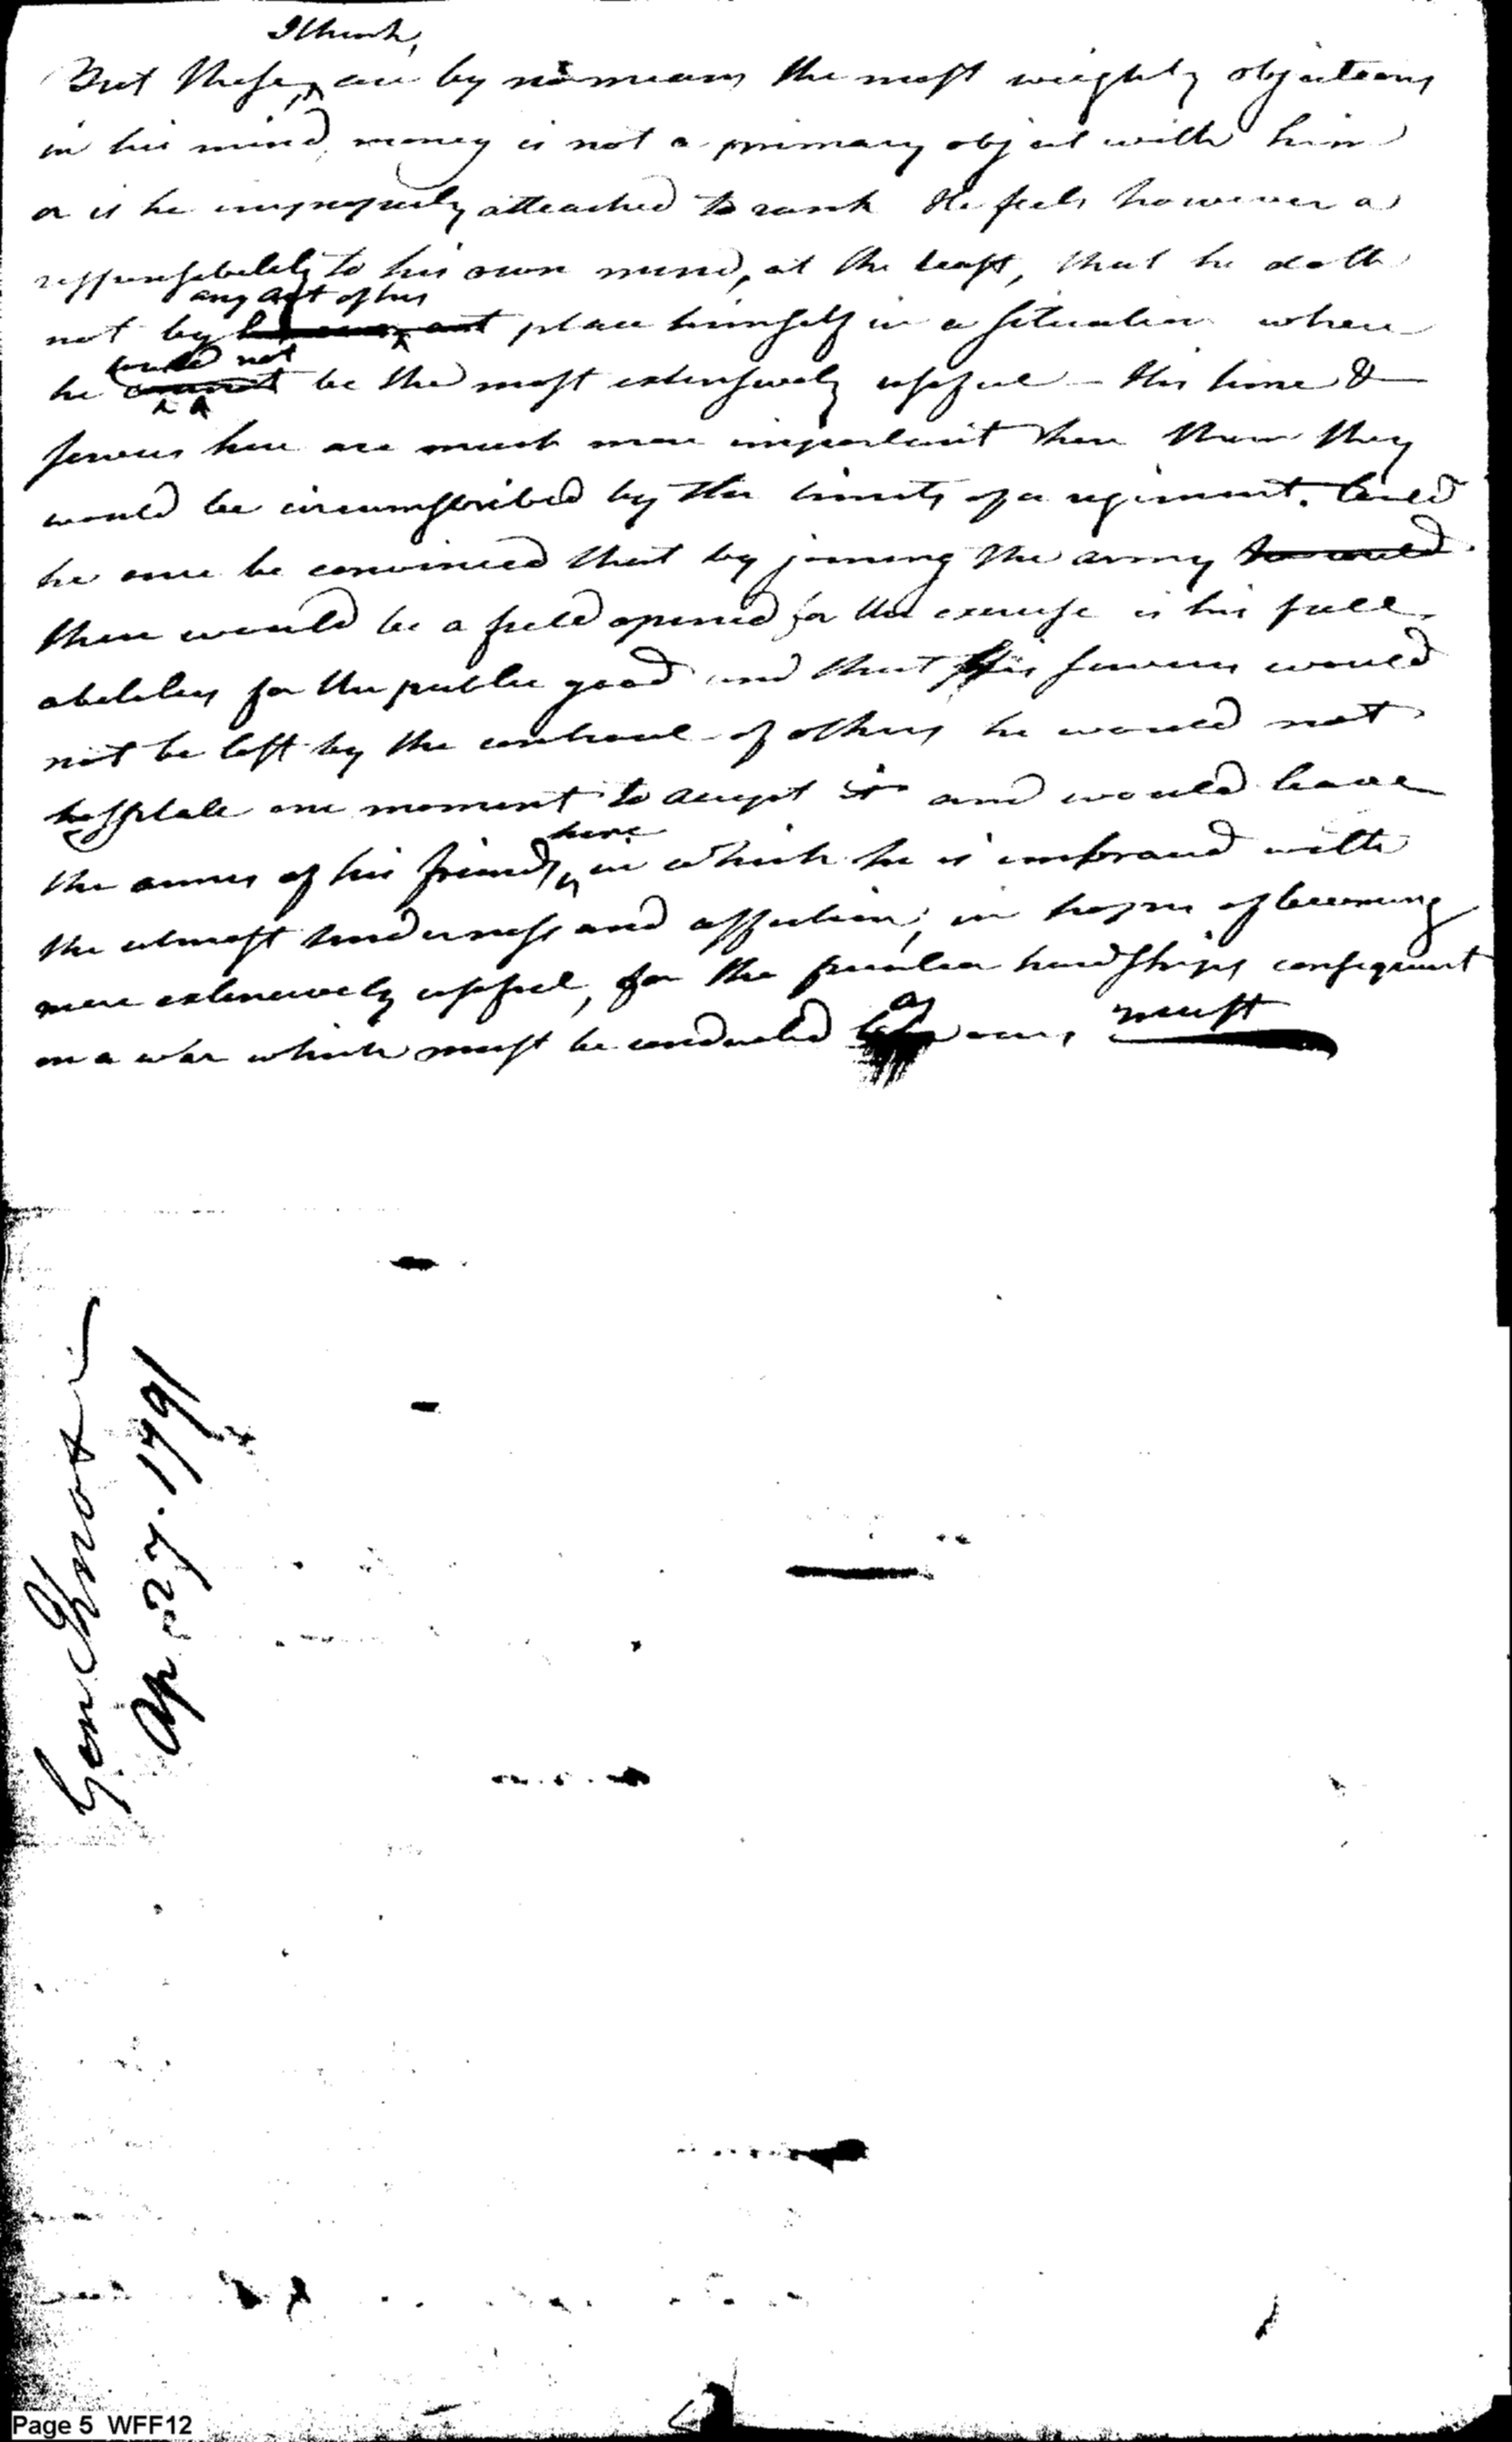 I think,
But these, are by no means the most weighty objections
in his mind, money is not a primary object with him
or is he improperly attached to rank He feels however a
responsibility to his own mind, at the least, that he doth
any act of his
not by place himself in a situation where
could not
he cannot be the most extensively useful – His time &
services here are much more important than there they
would be circumscribed by the limits of a regiment. Could
he once be convinced that by joining the army he would
there would be a field opened for the exercise of his full
abilities for the public good and that his services would
not be lost by the controul of others he would not
hesitate one moment to accept it and would leave
here
the arms of his friends, in which he is embraced with
the utmost tenderness and affection, in hopes of becoming
more extensively useful, for the peculiar hardships consequent
as
on a war which must be conducted ours, must
Gen Knox
Ap 27. 1791
Page 5 WFF12